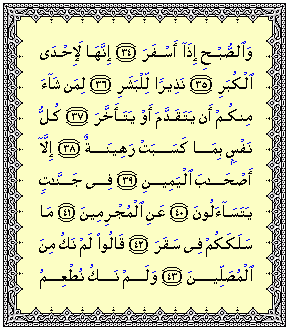 وَٱلصُّبْحِ إِذَآ أَسْفَرَ ٣٤ إِنَّهَا لَإِحْدَى
ٱلْكُبَرِ ٣٥ نَذِيرًا لِّلْبَشَرِ ٣٦ لِمَن شَآءَ
مِنكُمْ أَن يَتَقَدَّمَ أَوْ يَتَأَخَّرَ ٣٧ كُلُّ
نَفْسٍۭ بِمَا كَسَبَتْ رَهِينَةٌ ٣٨ إِلَّآ
أَصْحَٰبَ ٱلْيَمِينِ ٣٩ فِى جَنَّٰتٍ
يَتَسَآءَلُونَ ٤٠ عَنِ ٱلْمُجْرِمِينَ ٤١ مَا
سَلَكَكُمْ فِى سَقَرَ ٤٢ قَالُوا۟ لَمْ نَكُ مِنَ
ٱلْمُصَلِّينَ ٤٣ وَلَمْ نَكُ نُطْعِمُ